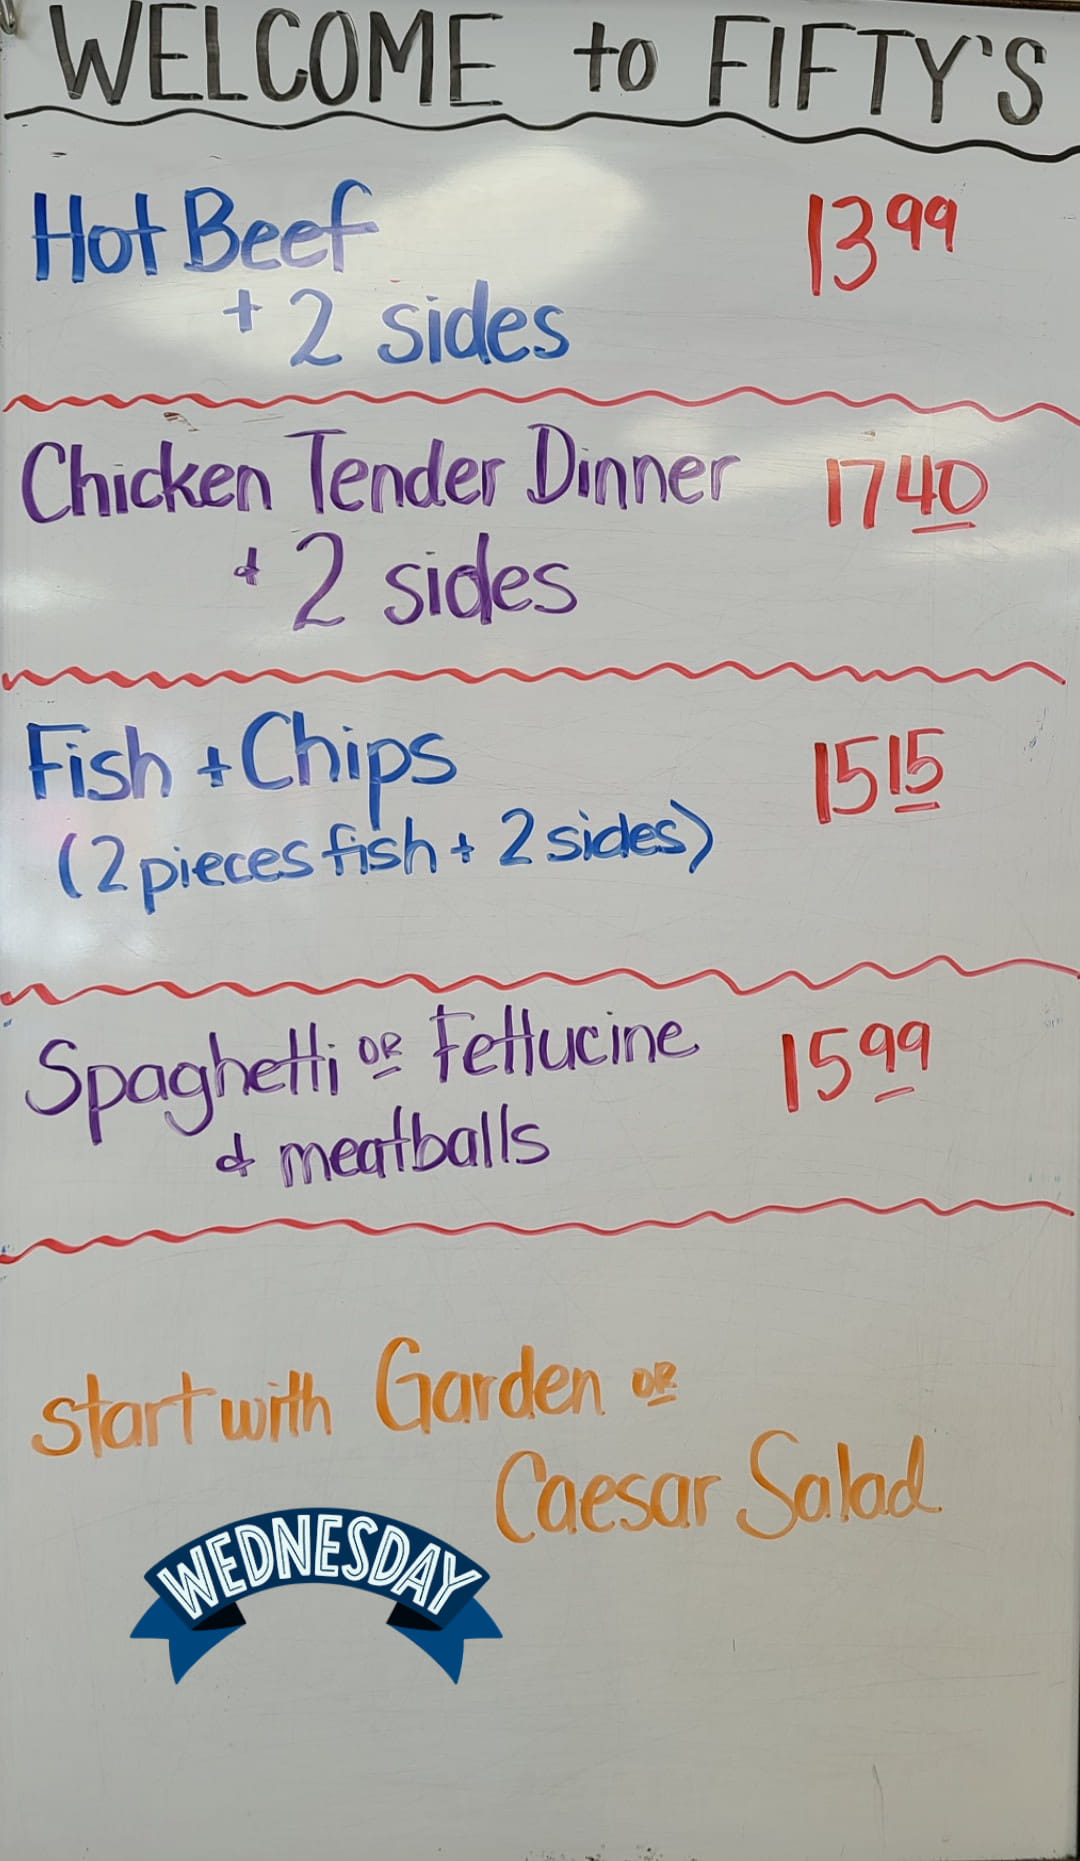 WELCOME to FIFTY'S
Hot Beef 13 99
+ 2 sides
Chicken Tender Dinner 17 40
+ 2 sides
Fish + Chips 15 15
(2 pieces fish + 2 sides)
Spaghetti OR Fettucine 15 99
+ meatballs
start with Garden OR
Caesar Salad
WEDNESDAY